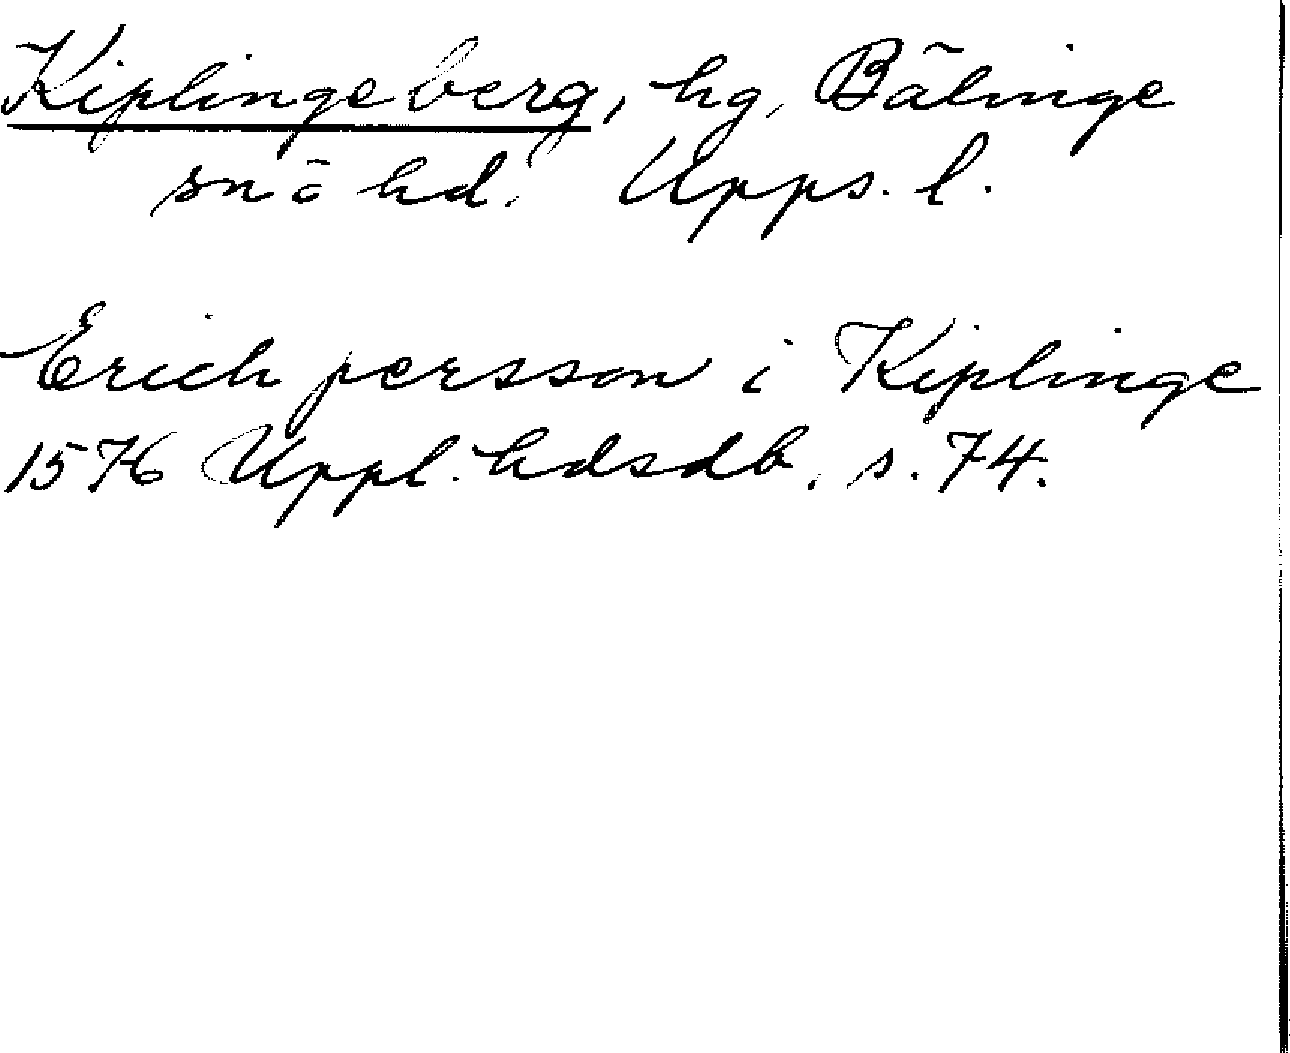 Kiplingeberg, hg, Bälinge
sn o hd. Upps. l.
Erich persson i Kiplinge
1576 Uppl. hdsdb. s. 74.